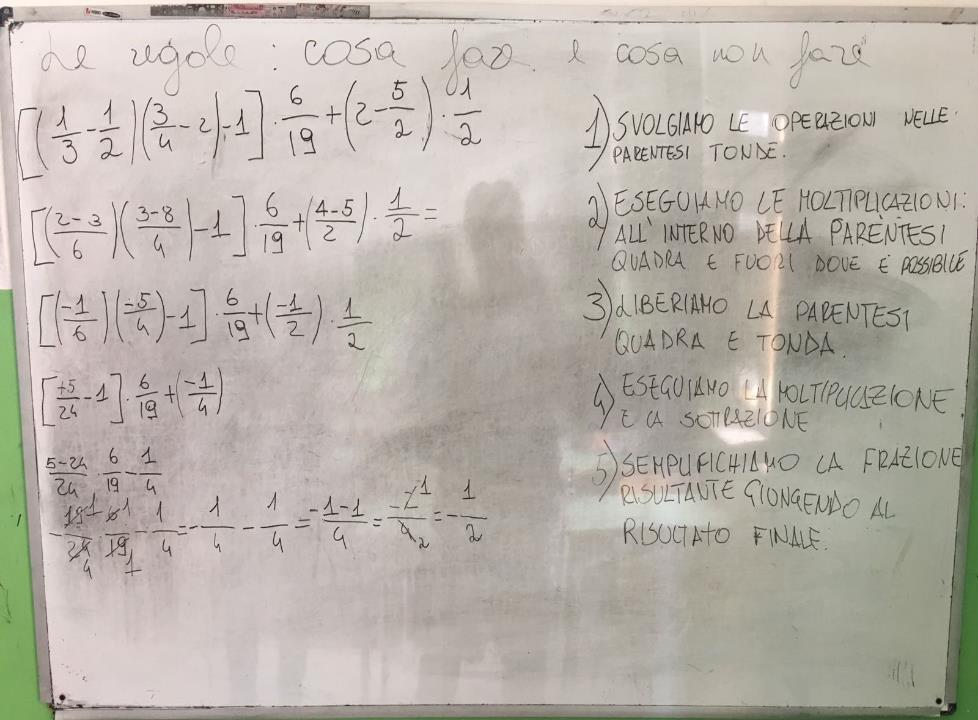 Le regole : cosa fare e cosa non fare
[(1/3 - 1/2)(3/4 - 2) - 1] · 6/19 + (2 - 5/2) · 1/2
[((2-3)/6)((3-8)/4) - 1] · 6/19 + ((4-5)/2) · 1/2 =
[(-1/6)(-5/4) - 1] · 6/19 + (-1/2) · 1/2
[+5/24 - 1] · 6/19 + (-1/4)
(5-24)/24 · 6/19 - 1/4
- 19 1/24 4 · 6 1/19 1 - 1/4 = - 1/4 - 1/4 = (-1-1)/4 = -2 1/4 2 = - 1/2
1) SVOLGIAMO LE OPERAZIONI NELLE
PARENTESI TONDE.
2) ESEGUIAMO LE MOLTIPLICAZIONI:
ALL'INTERNO DELLA PARENTESI
QUADRA E FUORI DOVE E' POSSIBILE
3) LIBERIAMO LA PARENTESI
QUADRA E TONDA.
4) ESEGUIAMO LA MOLTIPLICAZIONE
E LA SOTTRAZIONE
5) SEMPLIFICHIAMO LA FRAZIONE
RISULTANTE GIUNGENDO AL
RISULTATO FINALE.